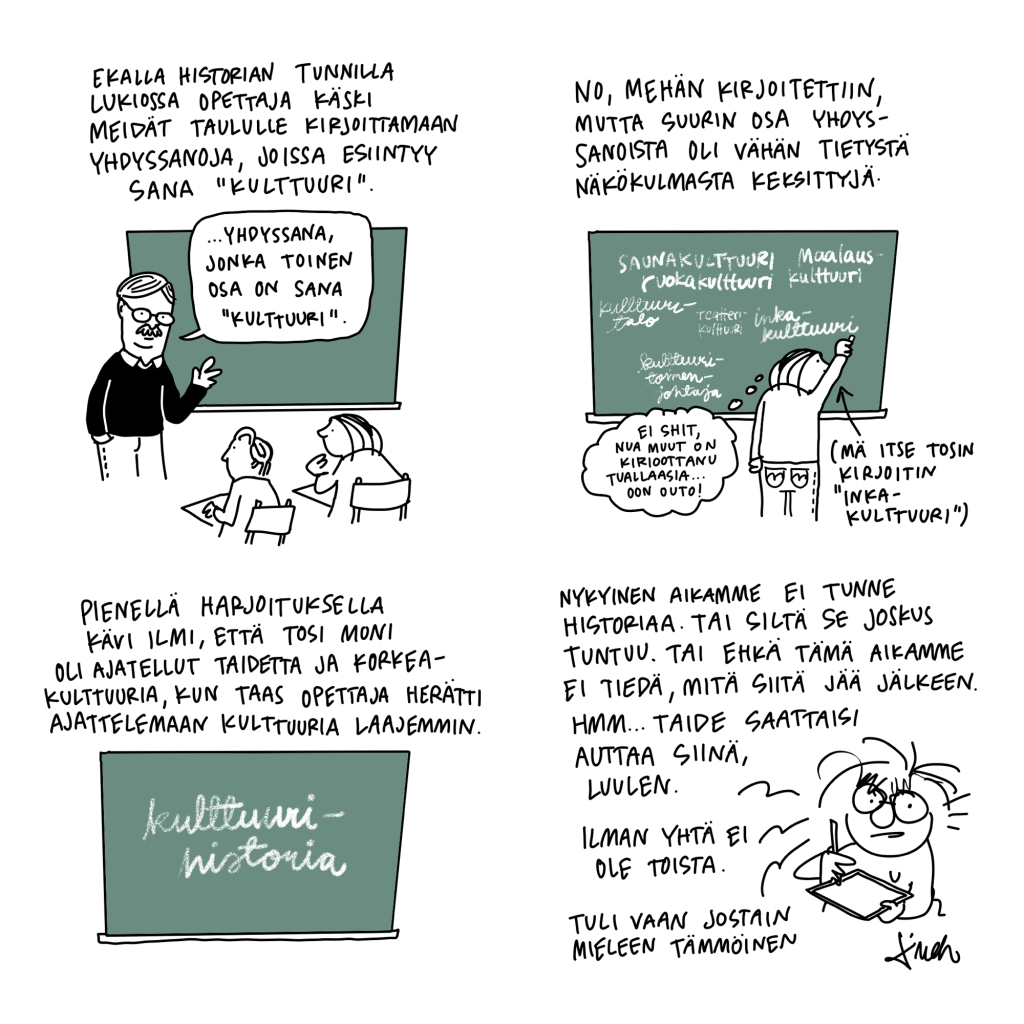 EKALLA HISTORIAN TUNNILLA
LUKIOSSA OPETTAJA KÄSKI
MEIDÄT TAULULLE KIRJOITTAMAAN
YHDYSSANOJA, JOISSA ESIINTYY
SANA "KULTTUURI".
...YHDYSSANA,
JONKA TOINEN
OSA ON SANA
"KULTTUURI".
NO, MEHÄN KIRJOITETTIIN,
MUTTA SUURIN OSA YHDYS-
SANOISTA OLI VÄHÄN TIETYSTÄ
NÄKÖKULMASTA KEKSITTYJÄ.
SAUNAKULTTUURI
ruokakulttuuri
Maalaus-
kulttuuri
kulttuuri-
talo
Teatteri-
kulttuuri
inka-
kulttuuri
kulttuuri-
toimen-
johtaja
EI SHIT,
NUA MUUT ON
KIRIOOTTANU
TUALLAASIA...
OON OUTO!
(MÄ ITSE TOSIN
KIRJOITIN
"INKA-
KULTTUURI")
PIENELLÄ HARJOITUKSELLA
KÄVI ILMI, ETTÄ TOSI MONI
OLI AJATELLUT TAIDETTA JA KORKEA-
KULTTUURIA, KUN TAAS OPETTAJA HERÄTTI
AJATTELEMAAN KULTTUURIA LAAJEMMIN.
kulttuuri-
historia
NYKYINEN AIKAMME EI TUNNE
HISTORIAA. TAI SILTÄ SE JOSKUS
TUNTUU. TAI EHKÄ TÄMÄ AIKAMME
EI TIEDÄ, MITÄ SIITÄ JÄÄ JÄLKEEN.
HMM... TAIDE SAATTAISI
AUTTAA SIINÄ,
LUULEN.
ILMAN YHTÄ EI
OLE TOISTA.
TULI VAAN JOSTAIN
MIELEEN TÄMMÖINEN